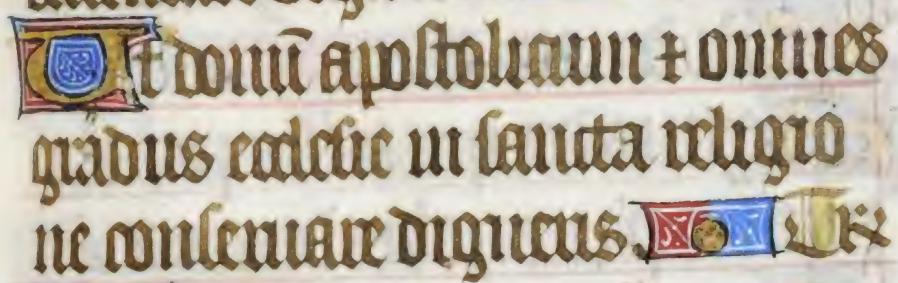 Ut domū apostolicum ⁊ omnes
gradus ecclesie in sancta religio
ne conseruare digneris. Te r̅